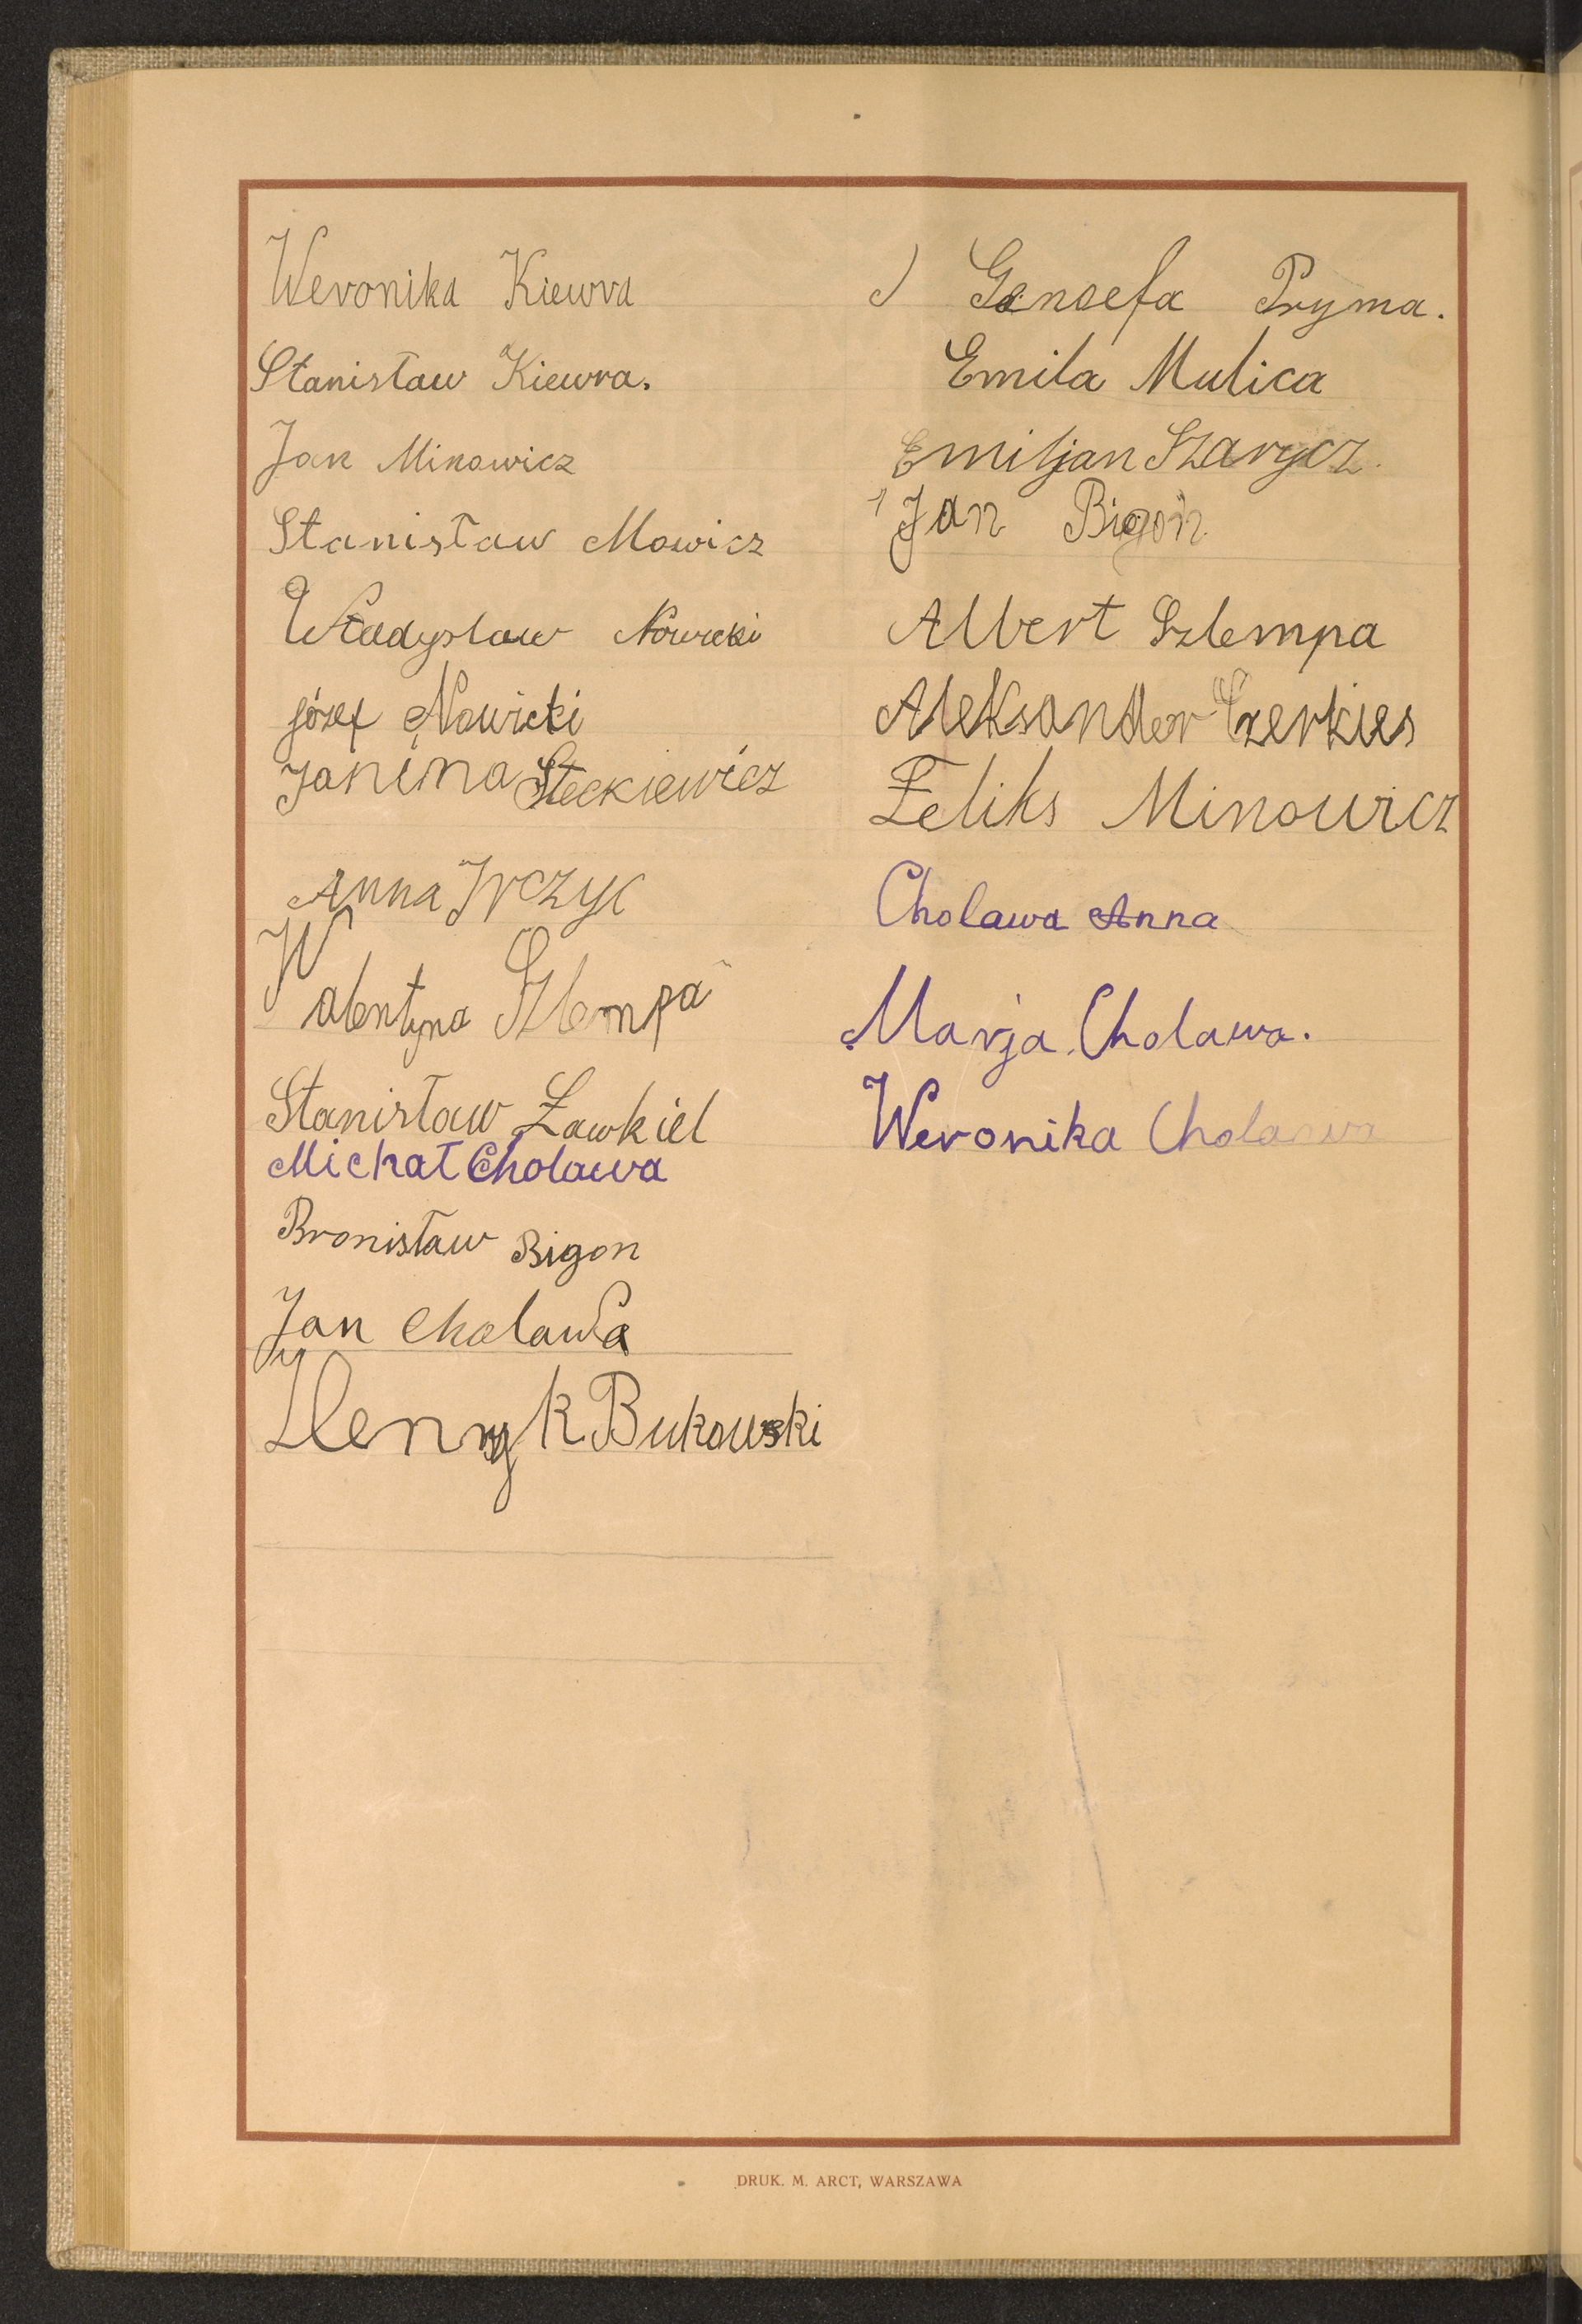 Weronika Kiewra
Stanisław Kiewra.
Jan Minowicz
Stanisław Mowicz
Władysław Nowicki
Józef Nowicki
Janina Steckiewicz
Anna Irczyc
Walentyna Szlempa
Stanisław Ławkiel
Michał Cholawa
Bronisław Bigon
Jan Cholawa
Henryk Bukowski
Genoefa Pryma.
Emila Mulica
Emiljan Szarycz.
Jan Bigoń
Albert Szlempa
Aleksander Czerkies
Feliks Minowicz
Cholawa Anna
Marja Cholawa.
Weronika Cholawa
DRUK. M. ARCT, WARSZAWA